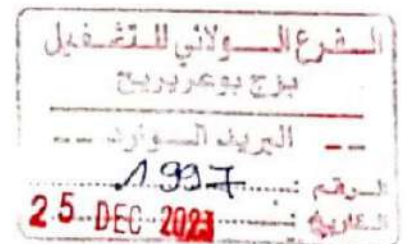 الفرع الولائي للتشغيل
برج بوعريريج
البريد الوارد
الرقم : 1997
التاريخ : 25 DEC